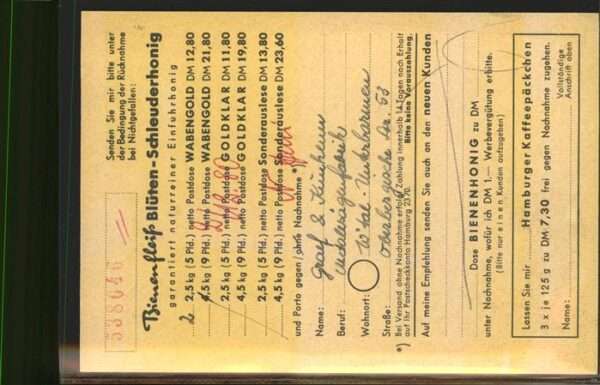 Senden Sie mir bitte unter
der Bedingung der Rücknahme
bei Nichtgefallen:
538646
Bienenfleiß Blüten-Schleuderhonig
garantiert naturreiner Einfuhrhonig
2 2,5 kg (5 Pfd.) netto Postdose WABENGOLD DM 12,80
4,5 kg (9 Pfd.) netto Postdose WABENGOLD DM 21,80
2,5 kg (5 Pfd.) netto Postdose GOLDKLAR DM 11,80
4,5 kg (9 Pfd.) netto Postdose GOLDKLAR DM 19,80
2,5 kg (5 Pfd.) netto Postdose Sonderauslese DM 13,80
4,5 kg (9 Pfd.) netto Postdose Sonderauslese DM 23,60
und Porto gegen/ohne Nachnahme *)
Name: Graf &
Beruf:
Wohnort: W'tal-Unterbarmen
Straße: Nr. 53
*) Bei Versand ohne Nachnahme erfolgt Zahlung innerhalb 14 Tagen nach Erhalt
auf Ihr Postscheckkonto Hamburg 2370. Bitte keine Vorauszahlung.
Auf meine Empfehlung senden Sie auch an den neuen Kunden
Dose BIENENHONIG zu DM
unter Nachnahme, wofür ich DM 1,— Werbevergütung erbitte.
(Bitte nur einen Kunden aufzugeben)
Lassen Sie mir Hamburger Kaffeepäckchen
3 x je 125 g zu DM 7,30 frei gegen Nachnahme zugehen.
Name: Vollständige
Anschrift oben